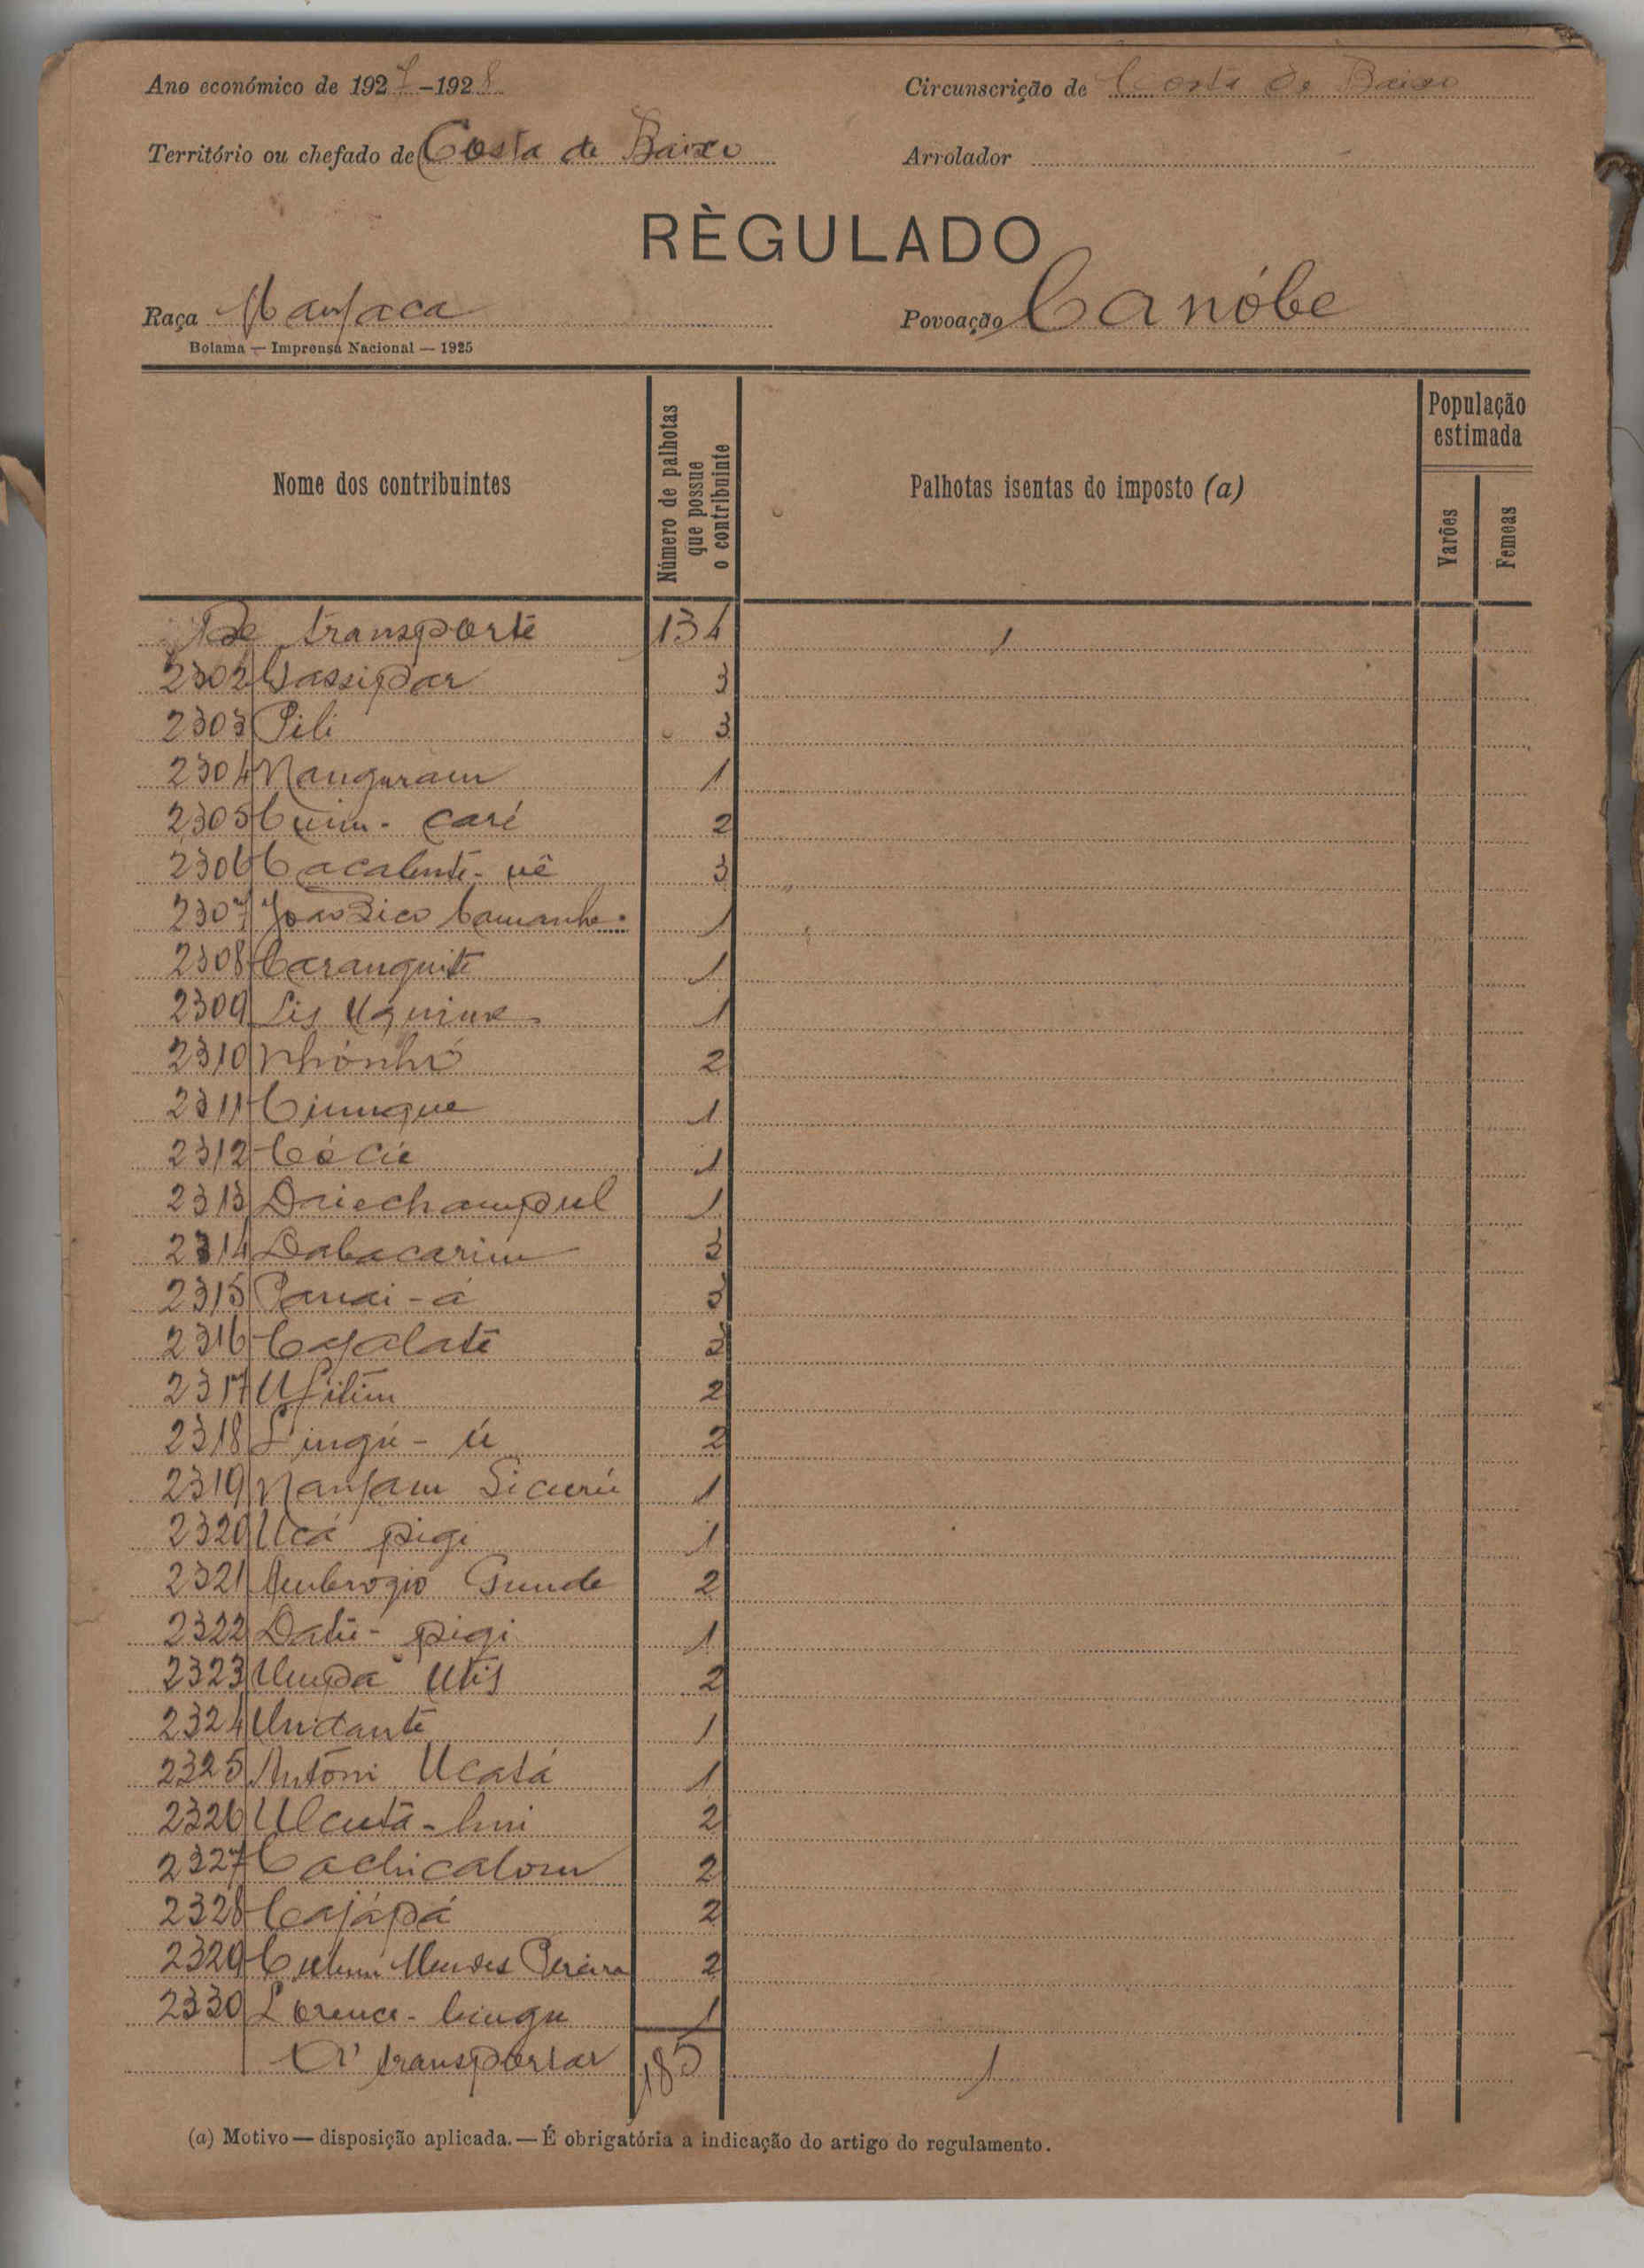 Ano económico de 1927-1928
Circunscrição de Costa de Baixo
Território ou chefado de Costa de Baixo
Arrolador
RÈGULADO
Raça Manjaca
Povoação Canóbe
Bolama — Imprensa Nacional — 1925
Nome dos contribuintes
Número de palhotas que possue o contribuinte
Palhotas isentas do imposto (a)
População estimada
Varões
Femeas
De transporte 134 1
2302 Gassipar 3
2303 Pili 3
2304 Nanguram 1
2305 Cuim - Caré 2
2306 3
2307 João 1
2308 Caranguite 1
2309 Lis 1
2310 Nhónhó 2
2311 1
2312 1
2313 Driechampul 1
2314 Dabacarim 3
2315 3
2316 Cajalate 3
2317 Ufilim 2
2318 Lingú - ú 2
2319 Nanjam Sicurú 1
2320 Ucá pigi 1
2321 Ambrogio 2
2322 Datú - pigi 1
2323 Umpa Utis 2
2324 1
2325 Antóni Ucatá 1
2326 2
2327 Cachicalom 2
2328 Cajápá 2
2329 Mendes Pereira 2
2330 1
A transportar 185 1
(a) Motivo — disposição aplicada. — É obrigatória a indicação do artigo do regulamento.